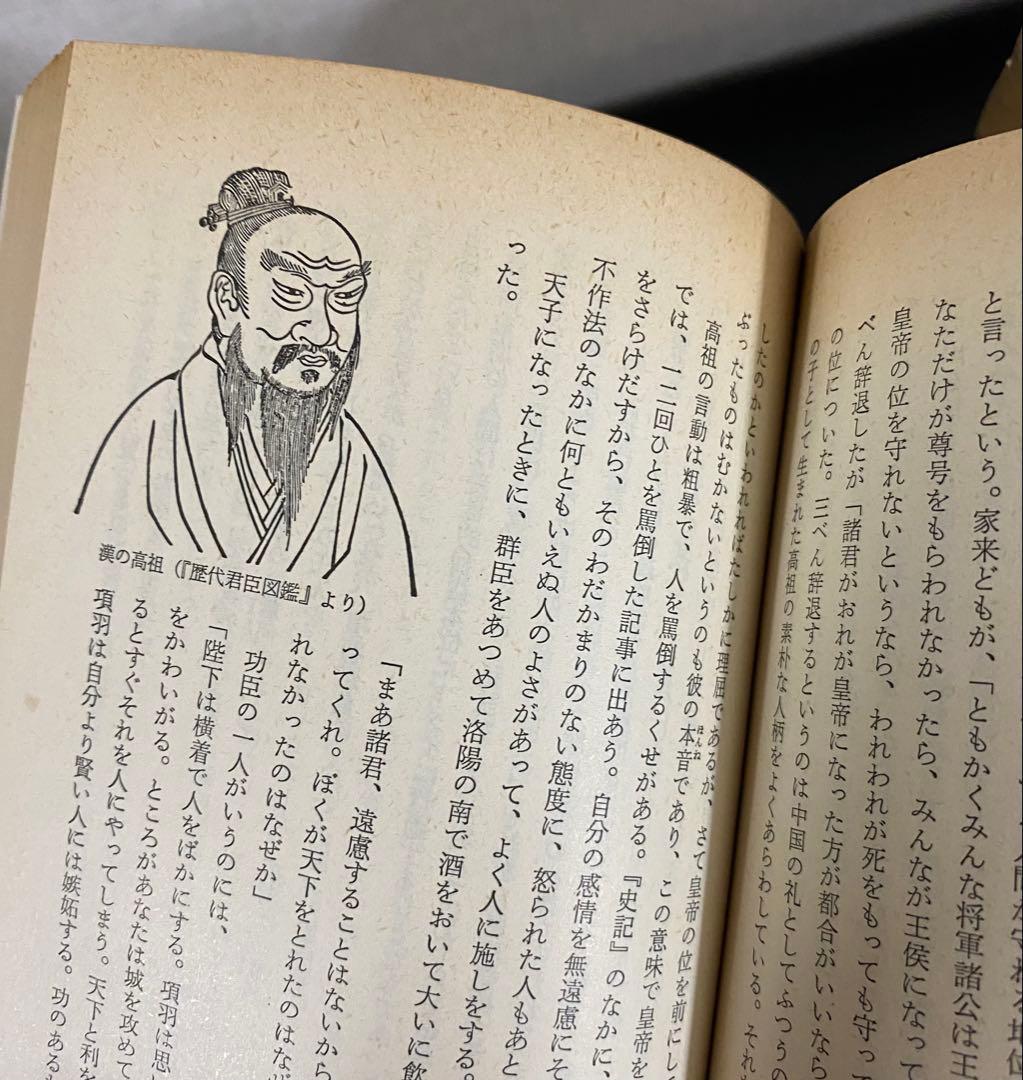 と言ったという。家来どもが、「ともかくみんな将軍諸公は王
なただけが尊号をもらわれなかったら、みんなが王侯になって
皇帝の位を守れないというなら、われわれが死をもっても守っ
べん辞退したが「諸君がおれが皇帝になった方が都合がいいなら
の位についた。三べん辞退するというのは中国の礼としてふつうの
の子として生まれた高祖の素朴な人柄をよくあらわしている。それ
したのかといわれればたしかに理屈であるが、さて皇帝の位を前にし
ぶったものはむかないというのも彼の本音であり、この意味で皇帝を
ほんね
高祖の言動は粗暴で、人を罵倒するくせがある。『史記』のなかに、
では、一二回ひとを罵倒した記事に出あう。自分の感情を無遠慮にそ
をさらけだすから、そのわだかまりのない態度に、怒られた人もあと
不作法のなかに何ともいえぬ人のよさがあって、よく人に施しをする。
天子になったときに、群臣をあつめて洛陽の南で酒をおいて大いに飲
った。
「まあ諸君、遠慮することはないから
ってくれ。ぼくが天下をとれたのはなぜ
れなかったのはなぜか」
功臣の一人がいうのには、
「陛下は横着で人をばかにする。項羽は思
をかわいがる。ところがあなたは城を攻めて
るとすぐそれを人にやってしまう。天下と利を
項羽は自分より賢い人には嫉妬する。功のある
漢の高祖（『歴代君臣図鑑』より）